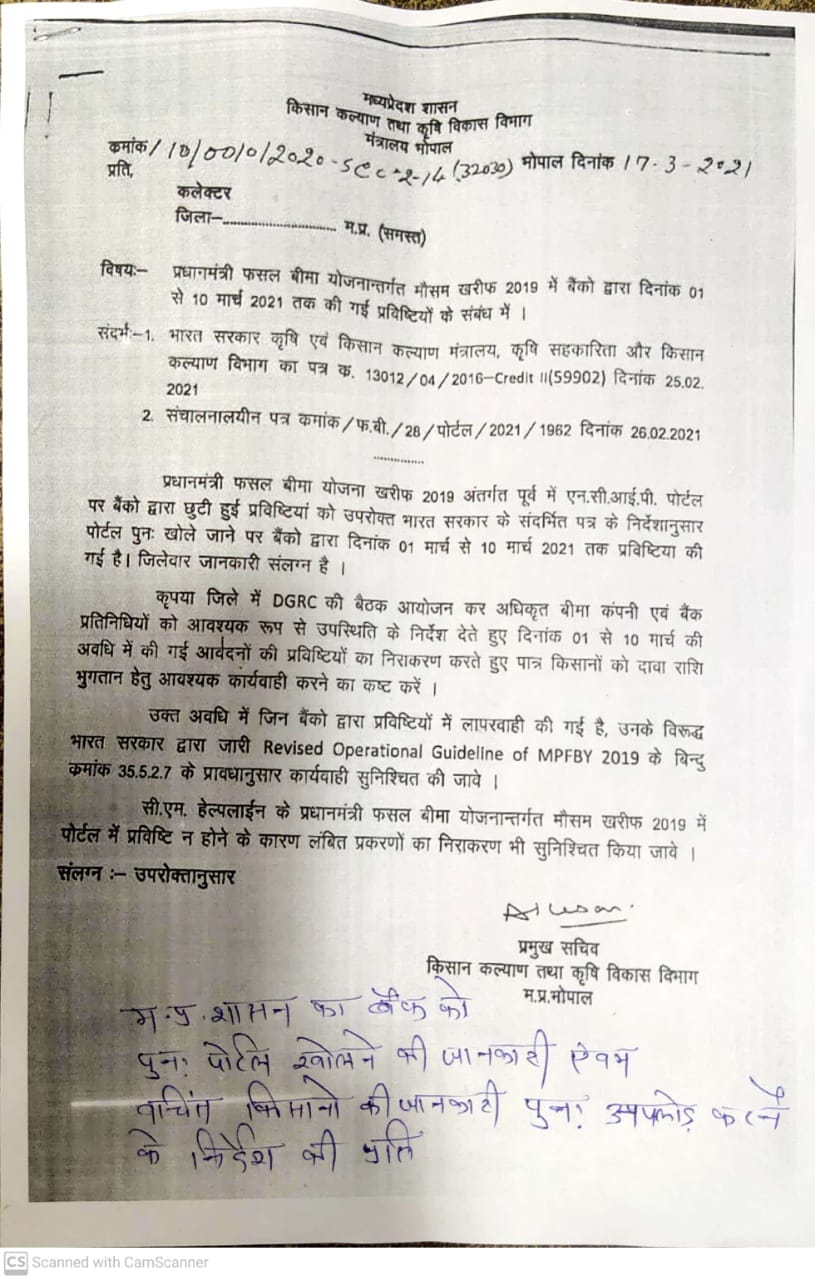 मध्यप्रदेश शासन
किसान कल्याण तथा कृषि विकास विभाग
मंत्रालय भोपाल
कमांक/10/0010/2020-sec-2-14 (32030) भोपाल दिनांक 17-3-2021
प्रति,
कलेक्टर
जिला–.............................. म.प्र. (समस्त)
विषयः– प्रधानमंत्री फसल बीमा योजनान्तर्गत मौसम खरीफ 2019 में बैंको द्वारा दिनांक 01
से 10 मार्च 2021 तक की गई प्रविष्टियों के संबंध में ।
संदर्भः–1. भारत सरकार कृषि एवं किसान कल्याण मंत्रालय, कृषि सहकारिता और किसान
कल्याण विभाग का पत्र क. 13012/04/2016–Credit II(59902) दिनांक 25.02.
2021
2. संचालनालयीन पत्र कमांक/फ.बी./28/पोर्टल/2021/1962 दिनांक 26.02.2021
.............
प्रधानमंत्री फसल बीमा योजना खरीफ 2019 अंतर्गत पूर्व में एन.सी.आई.पी. पोर्टल
पर बैंको द्वारा छुटी हुई प्रविष्टियां को उपरोक्त भारत सरकार के संदर्भित पत्र के निर्देशानुसार
पोर्टल पुनः खोले जाने पर बैंको द्वारा दिनांक 01 मार्च से 10 मार्च 2021 तक प्रविष्टिया की
गई है। जिलेवार जानकारी संलग्न है ।
कृपया जिले में DGRC की बैठक आयोजन कर अधिकृत बीमा कंपनी एवं बैंक
प्रतिनिधियों को आवश्यक रूप से उपस्थिति के निर्देश देते हुए दिनांक 01 से 10 मार्च की
अवधि में की गई आवेदनों की प्रविष्टियों का निराकरण करते हुए पात्र किसानों को दावा राशि
भुगतान हेतु आवश्यक कार्यवाही करने का कष्ट करें ।
उक्त अवधि में जिन बैंको द्वारा प्रविष्टियों में लापरवाही की गई है, उनके विरूद्ध
भारत सरकार द्वारा जारी Revised Operational Guideline of MPFBY 2019 के बिन्दु
क्रमांक 35.5.2.7 के प्रावधानुसार कार्यवाही सुनिश्चित की जावे ।
सी.एम. हेल्पलाईन के प्रधानमंत्री फसल बीमा योजनान्तर्गत मौसम खरीफ 2019 में
पोर्टल में प्रविष्टि न होने के कारण लंबित प्रकरणों का निराकरण भी सुनिश्चित किया जावे ।
संलग्न :– उपरोक्तानुसार
प्रमुख सचिव
किसान कल्याण तथा कृषि विकास विभाग
म.प्र.भोपाल
म.प्र.शासन का बैंक को
पुनः पोर्टल खोलने की जानकारी ऐवम
वाचिंत किसानो की जानकारी पुनः अपलोड करने
के निर्देश की प्रति
CS Scanned with CamScanner